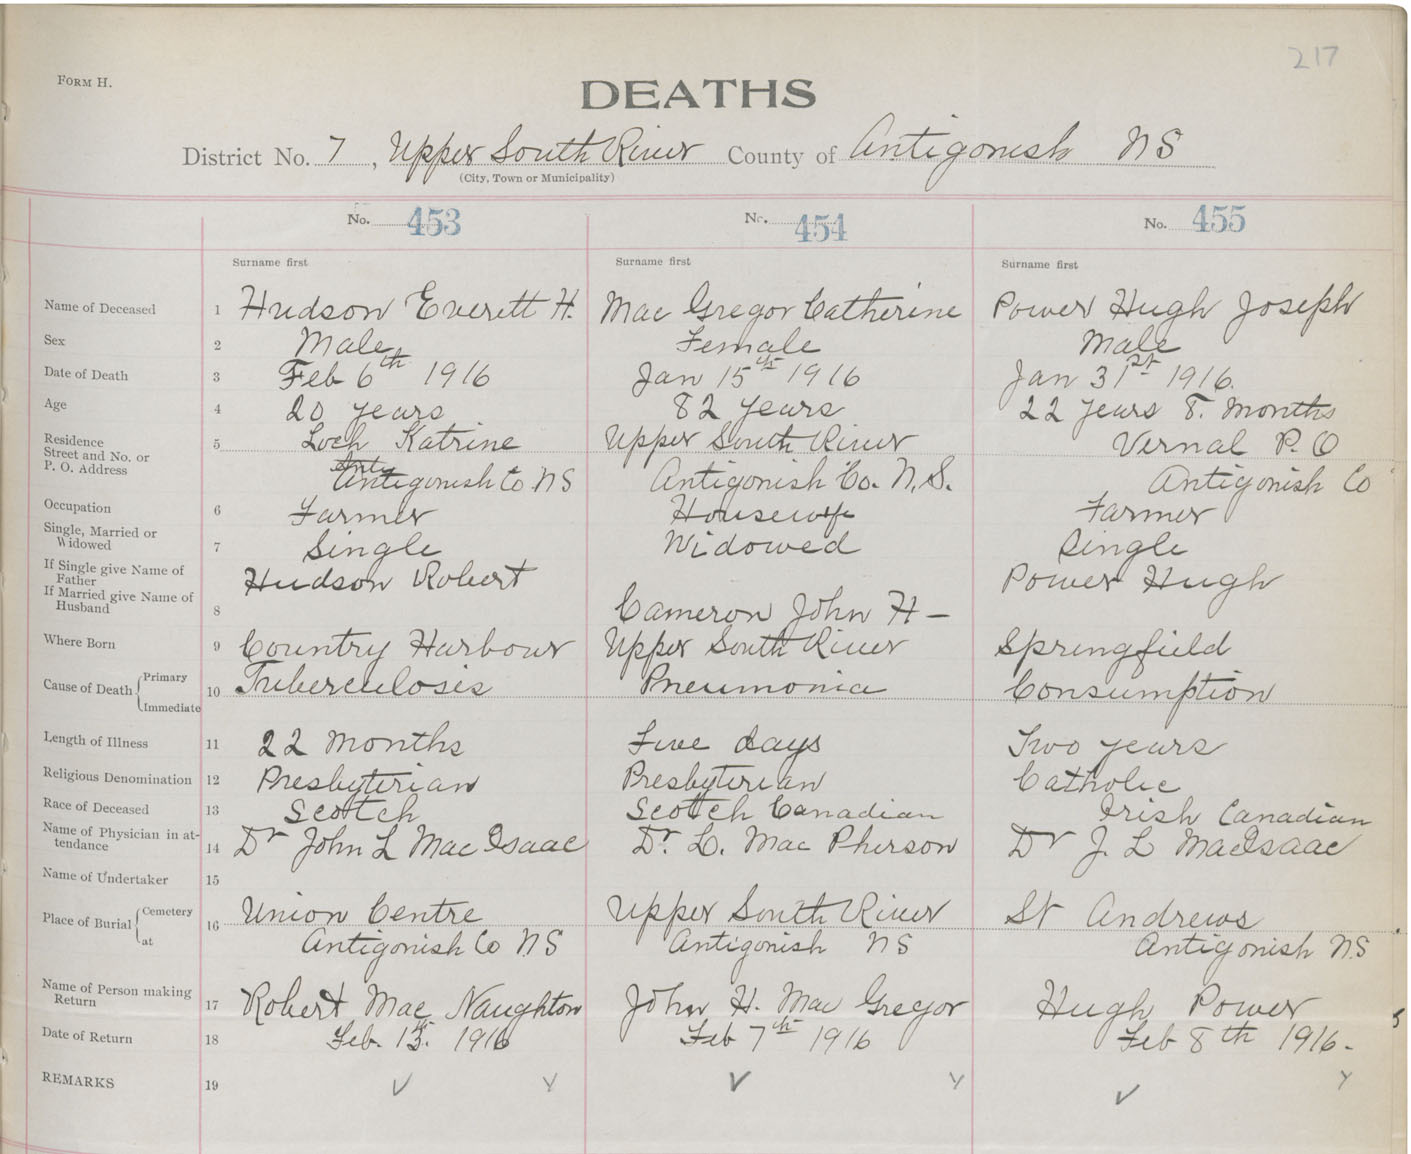 217
FORM H.
DEATHS
District No. 7, Upper South River County of Antigonish NS
(City, Town or Municipality)
No. 453 No. 454 No. 455
Surname first Surname first Surname first
Name of Deceased 1 Hudson Everett H. Mac Gregor Catherine Power Hugh Joseph
Sex 2 Male Female Male
Date of Death 3 Feb 6th 1916 Jan 15th 1916 Jan 31st 1916.
Age 4 20 years 82 years 22 years 8. months
Residence 5 Loch Katrine Upper South River Vernal P. O
Street and No. or
P. O. Address Antigonish Co NS Antigonish Co. N.S. Antigonish Co
Occupation 6 Farmer Housewife Farmer
Single, Married or
Widowed 7 Single Widowed Single
If Single give Name of
Father Hudson Robert Power Hugh
If Married give Name of
Husband 8 Cameron John H –
Where Born 9 Country Harbour Upper South River Springfield
Cause of Death { Primary
Immediate 10 Tuberculosis Pneumonia Consumption
Length of Illness 11 22 months Five days Two years
Religious Denomination 12 Presbyterian Presbyterian Catholic
Race of Deceased 13 Scotch Scotch Canadian Irish Canadian
Name of Physician in at-
tendance 14 Dr John L Mac Isaac Dr. L. Mac Pherson Dr J. L MacIsaac
Name of Undertaker 15
Place of Burial { Cemetery
at 16 Union Centre Upper South River St Andrews
Antigonish Co N.S Antigonish NS Antigonish N.S
Name of Person making
Return 17 Robert Mac Naughton John H. Mac Gregor Hugh Power
Date of Return 18 Feb. 13th. 1916 Feb 7th 1916 Feb 8th 1916.
REMARKS 19